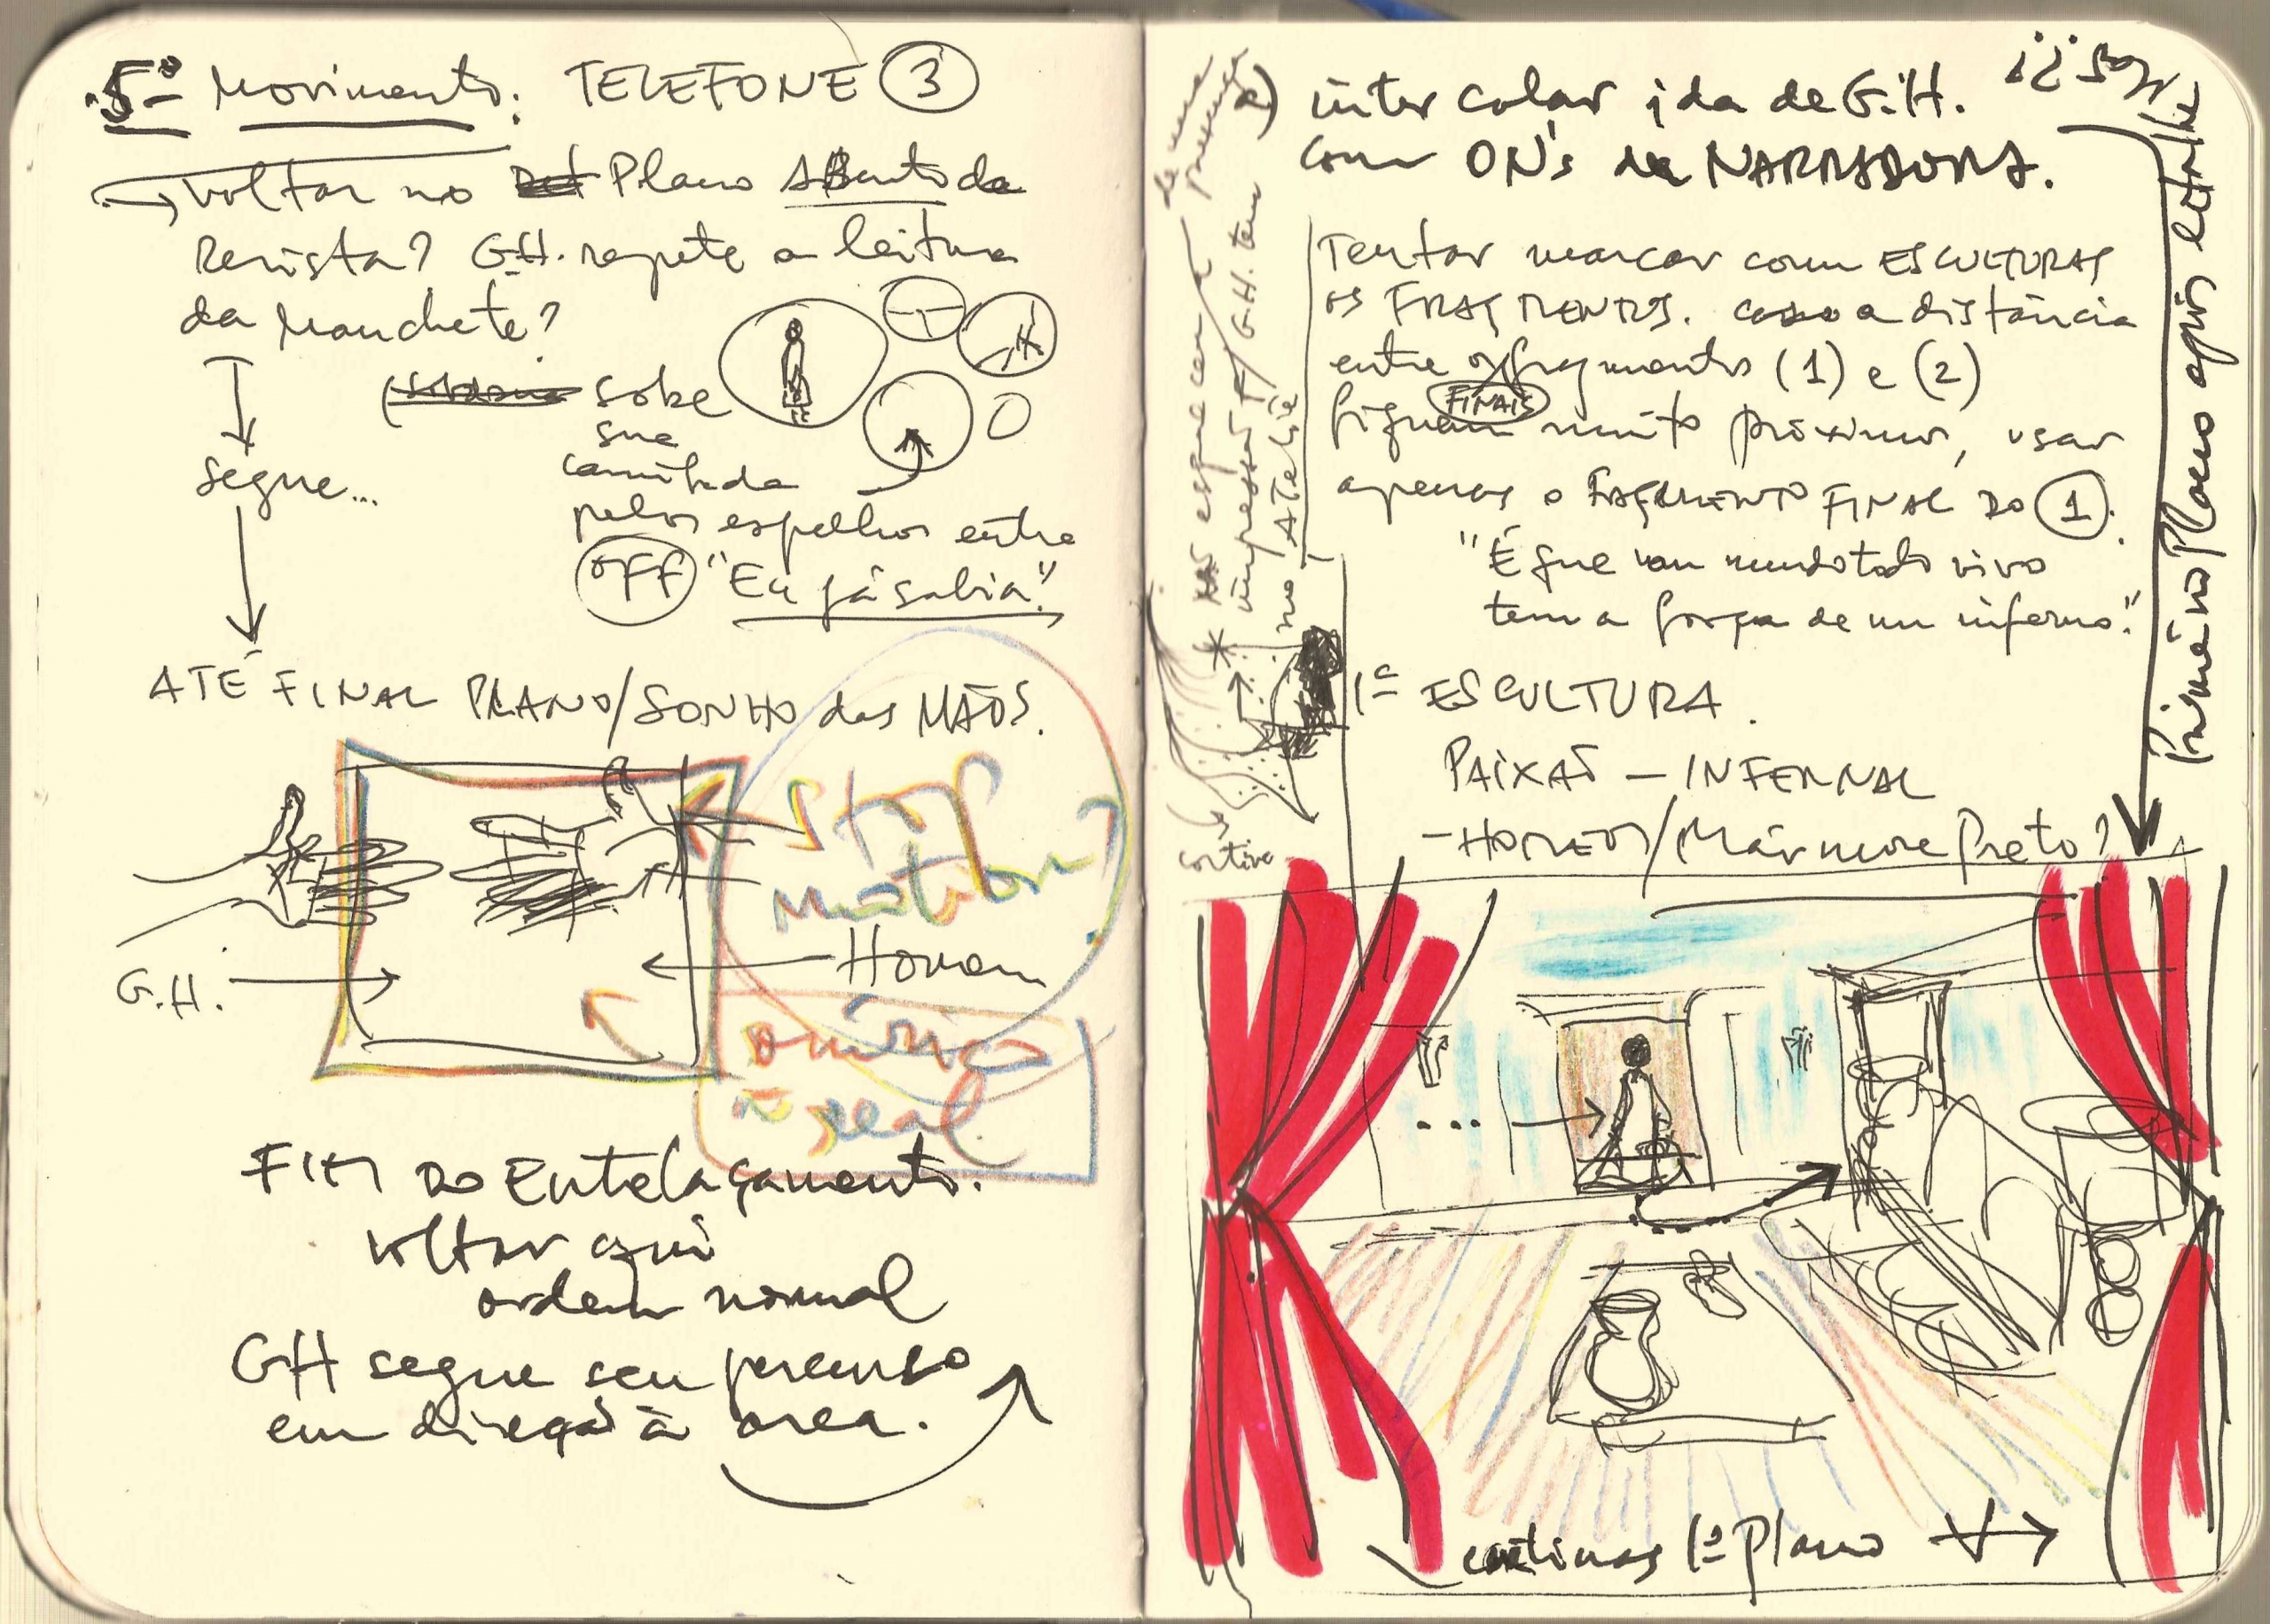 5º Movimento: TELEFONE 3
voltar no Plano ABerto da
Revista? G.H. repete a leitura
da Manchete?
segue...
sobe
sua
caminhada
pelos espelhos entre
OFF "Eu já sabia."
ATÉ FINAL PLANO/SONHO das MÃOS.
Stop
Motion?
Homem
G.H.
onírico
real
FIM DO Entelaçamento.
voltar aqui
ordem normal
GH segue seu percurso
em direção à área.
intercalar ida de G.H.
com ON's da NARRADORA.
Tentar marcar com ESCULTURAS
os FRAGMENTOS. caso a distância
entre os fragmentos (1) e (2)
FINAIS
fiquem muito próximos, usar
apenas o FRAGMENTO FINAL DO 1.
"É que um mundo todo vivo
tem a força de um inferno."
1ª ESCULTURA.
PAIXÃO – INFERNAL
– HOMEM/Mármore Preto?
Primeiro Plano após
impressão G.H. tem
de uma presença
no ATELIÊ
cortina
cortinas 1º Plano